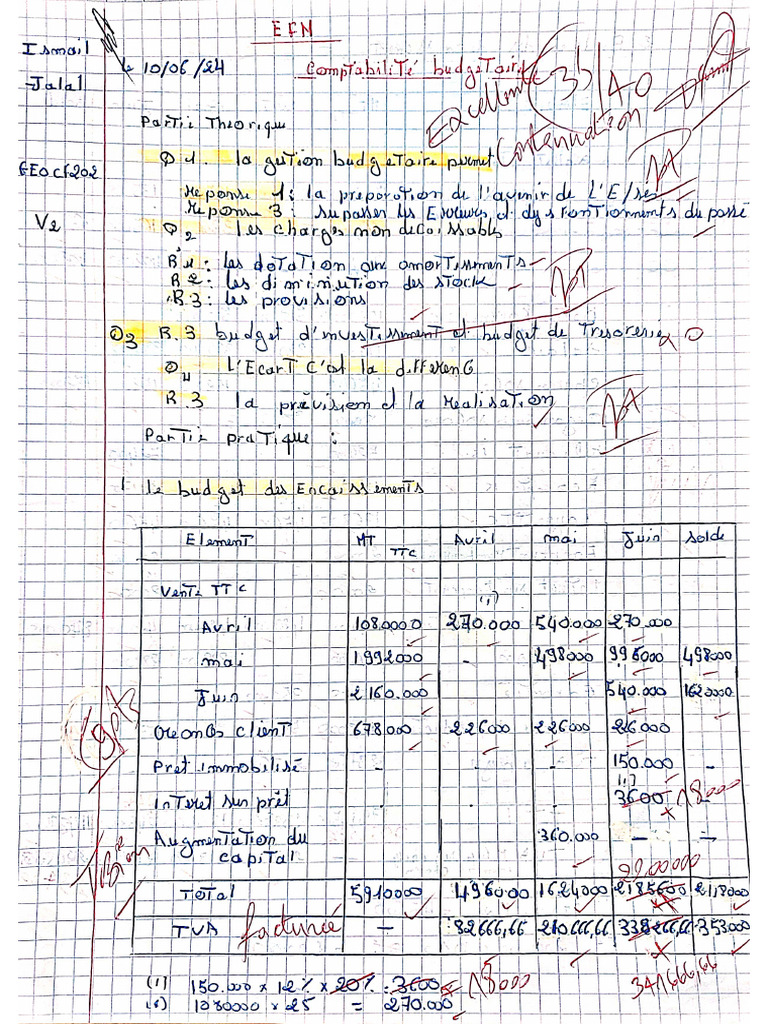 EFM
Ismail
Jalal
10/06/24
Comptabilité budgetaire
35/40
Excellent
Contennation
GEOCF202
V2
Partie Theorique
Q1. la gestion budgetaire permet
Reponse 1: la preparation de l'avenir de l'E/se
Reponse 3: Supasser les Erreurs et dysfontionnements du passé
Q2 Les charges non decaissables
R1: les dotation aux amortissments
R2: les diminution des stock
R.3: les provisions
Q3 R.3 budget d'investissment et budget de Tresorerie 0
Q4 L'Ecart c'est la differenc
R.3 la prévision et la realisation
Partie pratique :
1 le budget des Encaissements
Element MT TTC Avril mai Juin Solde
Vente TTC (1)
Avril 1080000 270.000 540.000 270.000
mai 1992000 - 498000 996000 498000
Juin 2160.000 540.000 1620000
Creances client 678000 226000 226000 226000
Pret immobilisé - - - 150.000 -
Interet sur prêt . . . (1) 3600 18000
Augmentation du capital 360.000 - -
2200000
Total 5910000 496000 1624000 2185600 2118000
TVA facturée - 82666,66 210666,66 338266,66 353000
341666,66
(1) 150.000 x 12% x 20% = 3600 18000
(1) 1080000 x 25 = 270.000